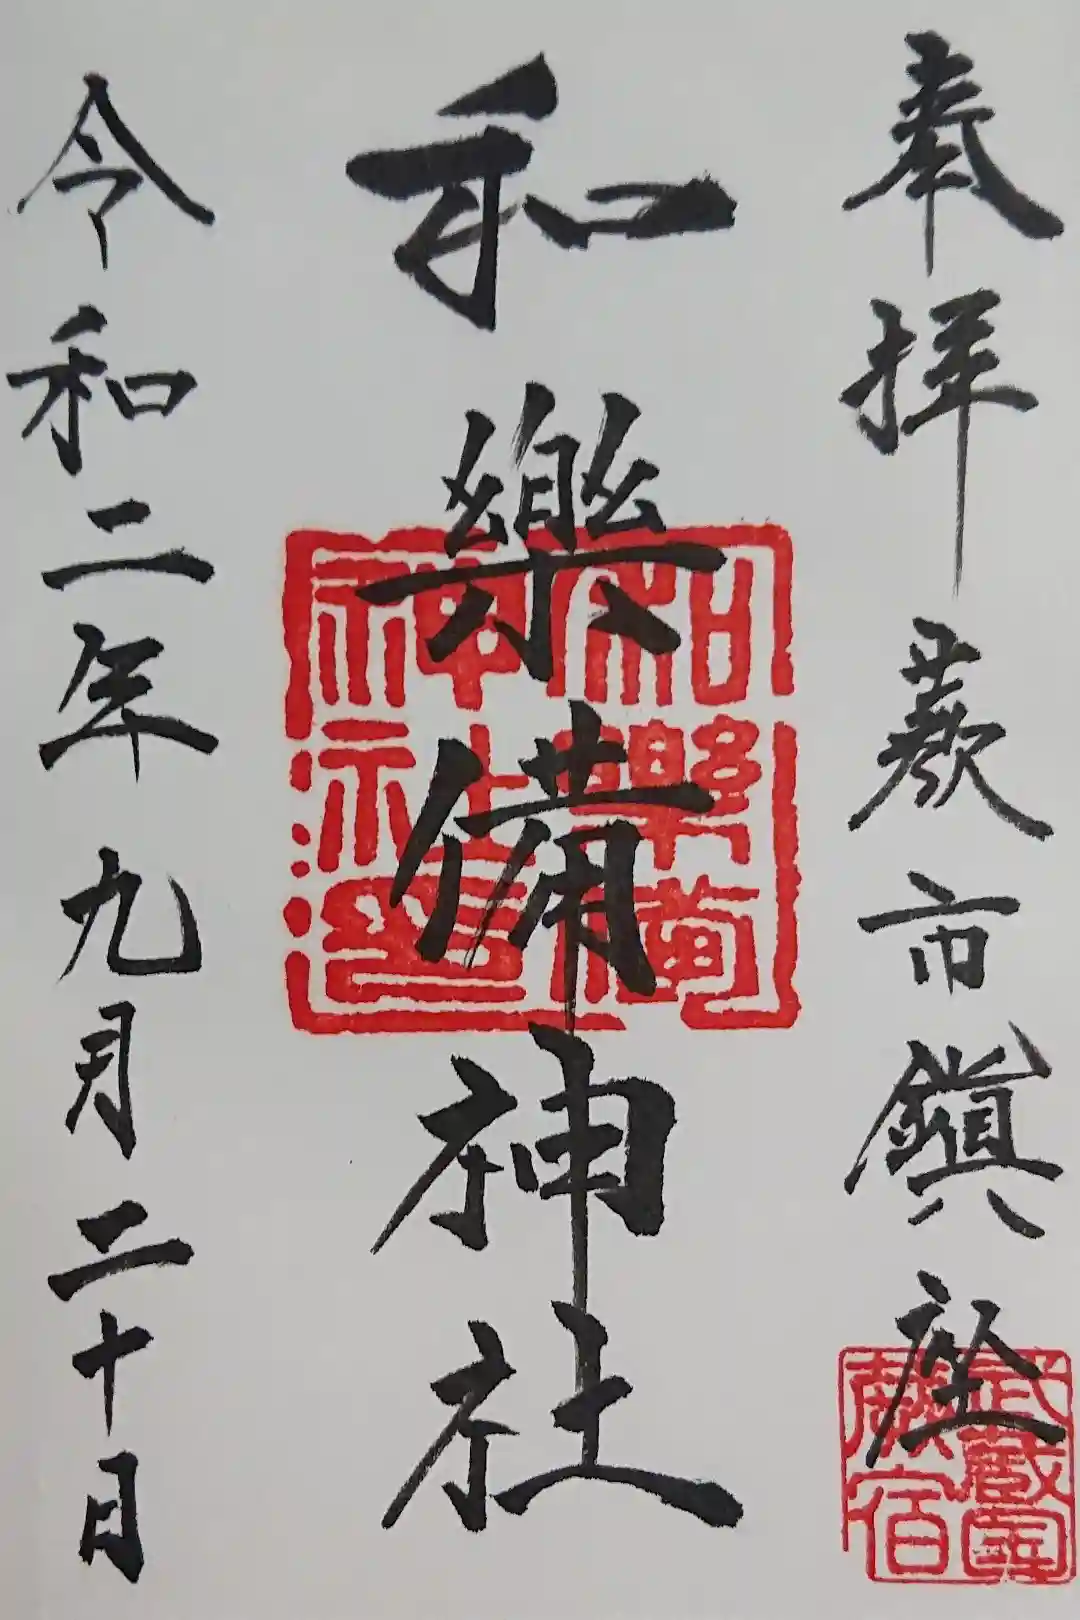 奉拝 蕨市鎮座
武蔵国
蕨宿
和樂備神社
和樂備
神社印
令和二年九月二十日